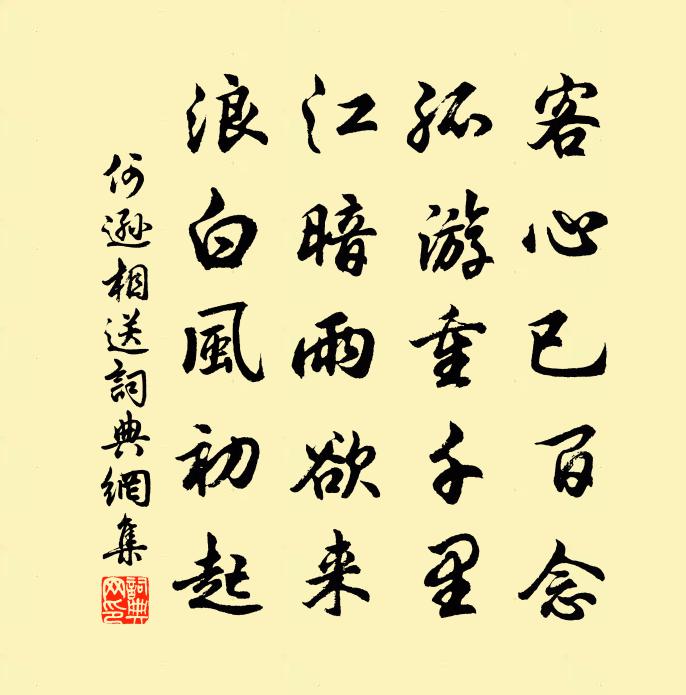 客心已百念
孤游重千里
江暗雨欲来
浪白風初起
何遜相送詞典網集
詞典网印